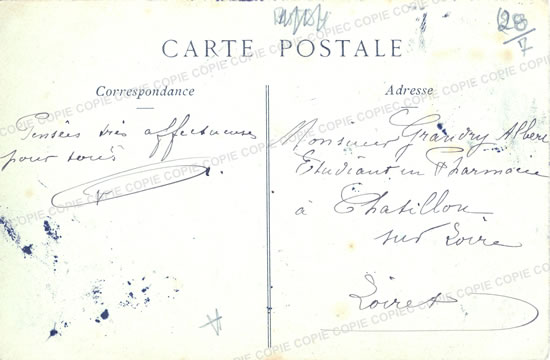 28
7
CARTE POSTALE
Correspondance
Adresse
Pensées très affectueuses
pour tous
Monsieur Grandry Albert
Etudiant en Pharmacie
à Chatillon
sur Loire
Loiret
COPIE COPIE COPIE COPIE COPIE COPIE